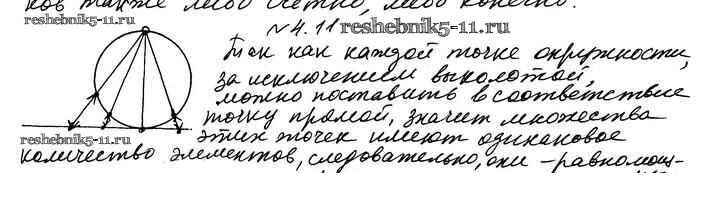 ков также либо счетно, либо конечно.
№4.11
reshebnik5-11.ru
Так как каждой точке окружности,
за исключением выколотой,
можно поставить в соответствие
точку прямой, значит множества
reshebnik5-11.ru
этих точек имеют одинаковое
количество элементов, следовательно, они – равномощ-